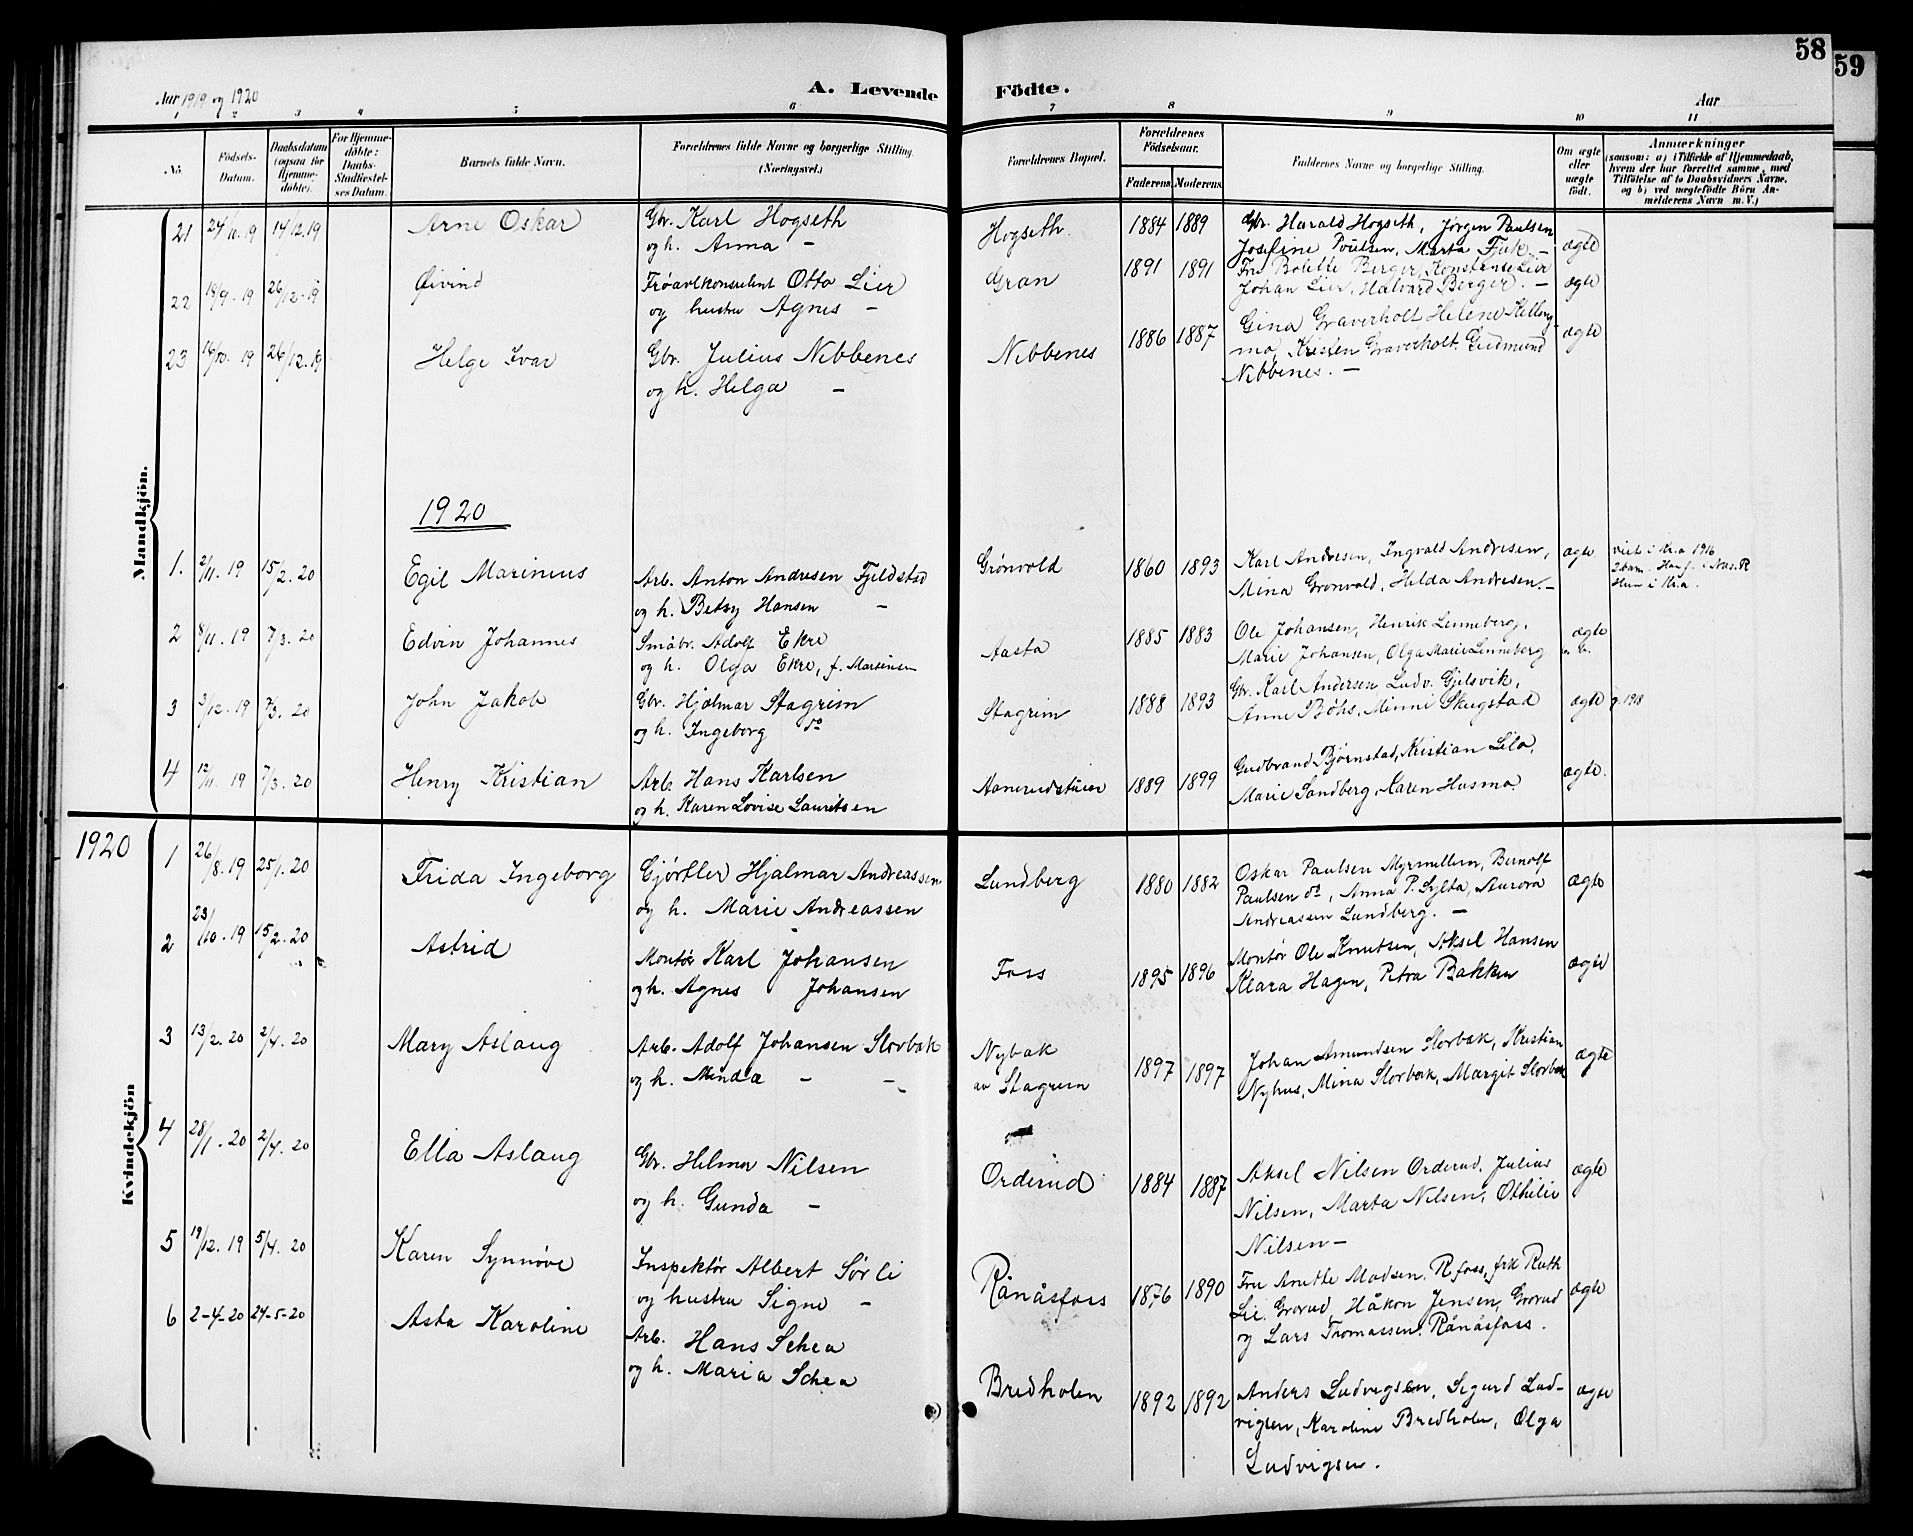 58
59
Aar 1919 og 1920
A. Levende Födte.
Aar
3 4 5 6 7 8 9 10 11
No.
Födsels-Datum.
Daabsdatum (ogsaa for Hjemme-döbte).
For Hjemme-döbte: Daabs-Stadfæstel-ses Datum.
Barnets fulde Navn.
Forældrenes fulde Navne og borgerlige Stilling. (Næringsvei.)
Forældrenes Bopæl.
Forældrenes Födselsaar.
Faderens. Moderens.
Faddernes Navne og borgerlige Stilling.
Om ægte eller uægte födt.
Anmærkninger
(saasom: a) i Tilfælde af Hjemmedaab,
hvem der har forrettet samme, med
Tilföielse af to Daabsvidners Navne,
og b) ved uægtefödte Börn An-
melderens Navn m. V.)
Mandkjön.
21 24/10.19 14/12.19 Arne Oskar Gbr. Karl Hogseth Hogseth. 1884 1889 Gbr. Harald Hogseth, Jørgen Paulsen
og h. Anna – Josefine Poulsen, Marta – ægte
22 18/9.19 26/12.19 Øivind Frøavlkonsulent Otto Lier Gran 1891 1891 Fru Bolette Berger, Konstanse Lier
og hustru Agnes – Johan Lier, Halvard Berger. – ægte
23 16/10.19 26/12.19 Helge Ivar Gbr. Julius Nebbenes Nebbenes 1886 1887 Gina Graverholt, Helene Kellong- ægte
og h. Helga – mo, Kristen Graverholt. Gudmund
Nebbenes. –
1920
1. 2/11.19 15/2.20 Egil Marinius Arb. Anton Andresen Fjeldstad Grönvold 1860 1893 Karl Andresen, Ingvald Andresen, ægte viet i Kr.a 1916
og h. Betsy Hansen – Mina Grønvold, Helda Andresen. –
2 barn. Han f. i Nes. R
Hun i Kr.a.
2 8/11.19 7/3.20 Edvin Johannes Småbr. Adolf Ekre Aasta 1885 1883 Ole Johansen, Henrik Linneberg, ægte
og h. Olga Ekre, f. Martinsen Marie Johansen, Olga Marie Linneberg
3 3/12.19 7/3.20 John Jakob Gbr. Hjalmar Stagrim Stagrim 1888 1893 Gbr. Karl Andersen, Ludv. Gjelsvik, ægte g. 1918
og h. Ingeborg do Anne Böhs, Minni Skugstad
4 12/11.19 7/3.20 Henry Kristian Arb. Hans Karlsen Aanerudstuen 1889 1899 Gudbrand Bjørnstad, Kristian Lilo, ægte.
og h. Karen Lovise Lauritsen Marie Sandberg, Karen Husmo
1920
Kvindekjön
1 26/8.19 25/1.20 Frida Ingeborg Gjørtler Hjalmar Andreassen Lundberg 1880 1882 Oskar Paulsen Myrmellem, Bernolf ægte
og h. Marie Andreassen Paulsen do, Anna P. Sylta, Aurora
Andreassen Lundberg. –
2 23/10.19 15/2.20 Astrid Montør Karl Johansen Foss 1895 1896 Montør Ole Knutsen, Aksel Hansen ægte
og h. Agnes Johansen Klara Hagen, Petra Bakken
3 13/2.20 2/4.20 Mary Aslaug Arb. Adolf Johansen Storbak Nybak 1897 1897 Johan Amundsen Storbak, Kristian ægte
og h. Minda – – av Stagrim Nyhus, Mina Storbak, Margit Storbak
4 28/1.20 2/4.20 Ella Aslaug Gbr. Helmer Nilsen Orderud 1884 1887 Aksel Nilsen Orderud, Julius ægte
og h. Gunda – Nilsen, Marta Nilsen, Othilie
Nilsen –
5 19/12.19 5/4.20 Karen Synnøve Inspektør Albert Sørli Rånåsfoss 1876 1890 Fru Anette Madsen, R.foss, frk Ruth ægte
og hustru Signe – Lie, Grorud, Håkon Jensen, Grorud
og Lars Thomassen, Rånåsfoss.
6 2-4-20 24-5-20 Asta Karoline Arb. Hans Schea Bredholen 1892 1892 Anders Ludvigsen, Sigurd Lud- ægte
og h. Maria Schea vigsen, Karoline Bredholen, Olga
Ludvigsen.